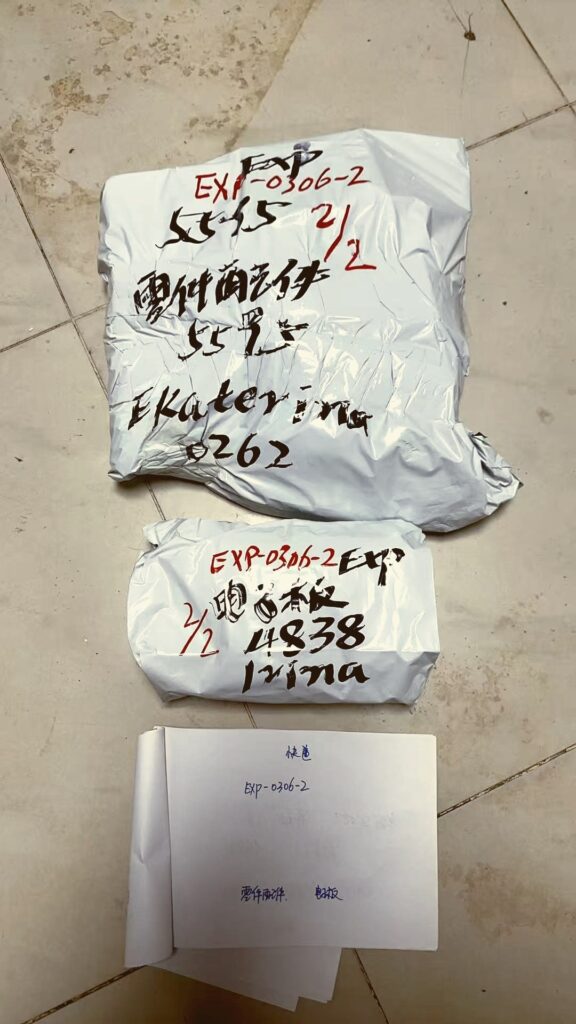 EXP
EXP-0306-2
2/2
零件配件
Ekaterina
0262
EXP-0306-2 EXP
2/2
4838
Irina
快递
EXP-0306-2
零件配件 电子板